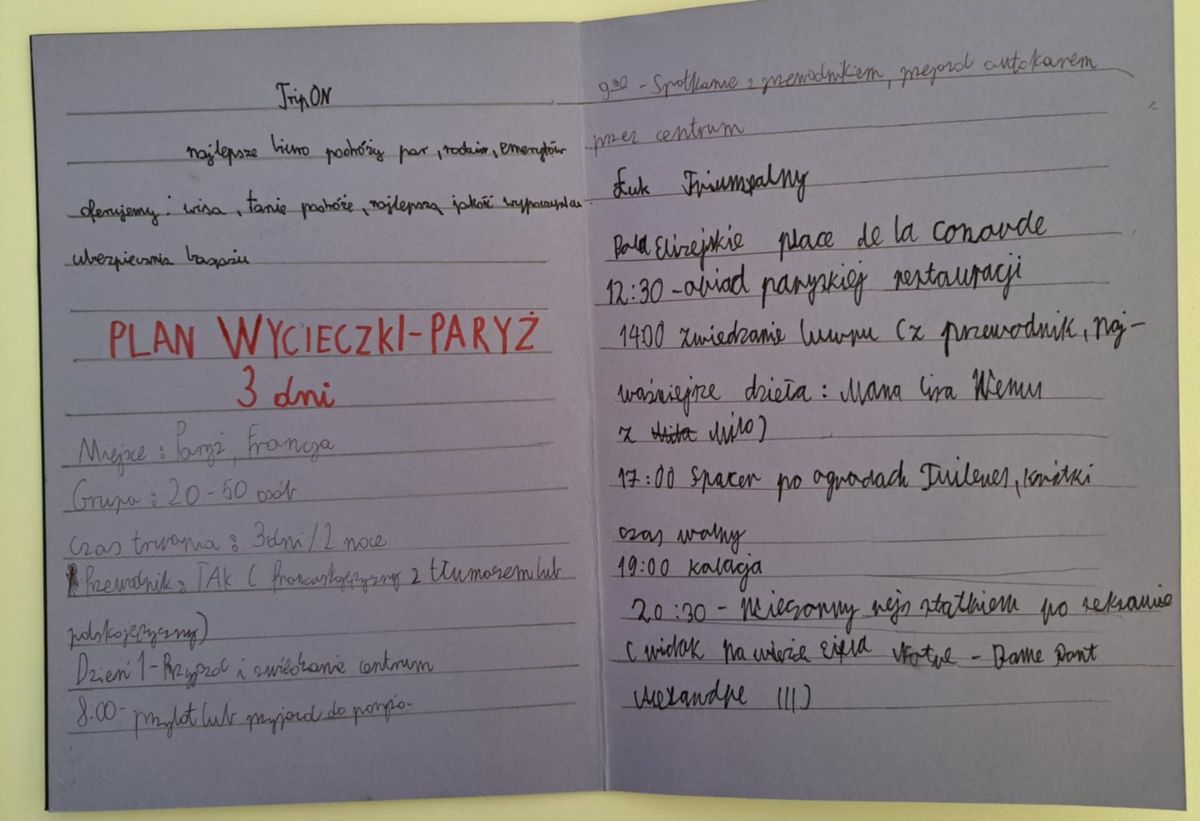 TripON
najlepsze biuro podróży par, rodzin, emerytów
oferujemy: wisa, tanie podróże, najlepszą jakość wypoczynku
ubezpieczenia bagażu
PLAN WYCIECZKI-PARYŻ
3 dni
Miejsce: Paryż, Francja
Grupa: 20-50 osób
Czas trwania: 3dni/2 noce
Przewodnik: TAK (francuskojęzyczny z tłumaczem lub
polskojęzyczny)
Dzień 1-Przyjazd i zwiedzanie centrum
8:00- przylot lub przyjazd do
9:00 - Spotkanie z przewodnikiem, przejazd autokarem
przez centrum
Łuk Triumfalny
Elizejskie place de la
12:30-obiad paryskiej restauracji
1400 zwiedzanie (z przewodnik, naj-
ważniejsze dzieła: Mana lisa Wenus
z Milo)
17:00 Spacer po ogrodach krótki
czas wolny
19:00 kolacja
20:30- Wieczorny rejs statkiem po sekwanie
(widok na wieżę - Dame Pont
III)